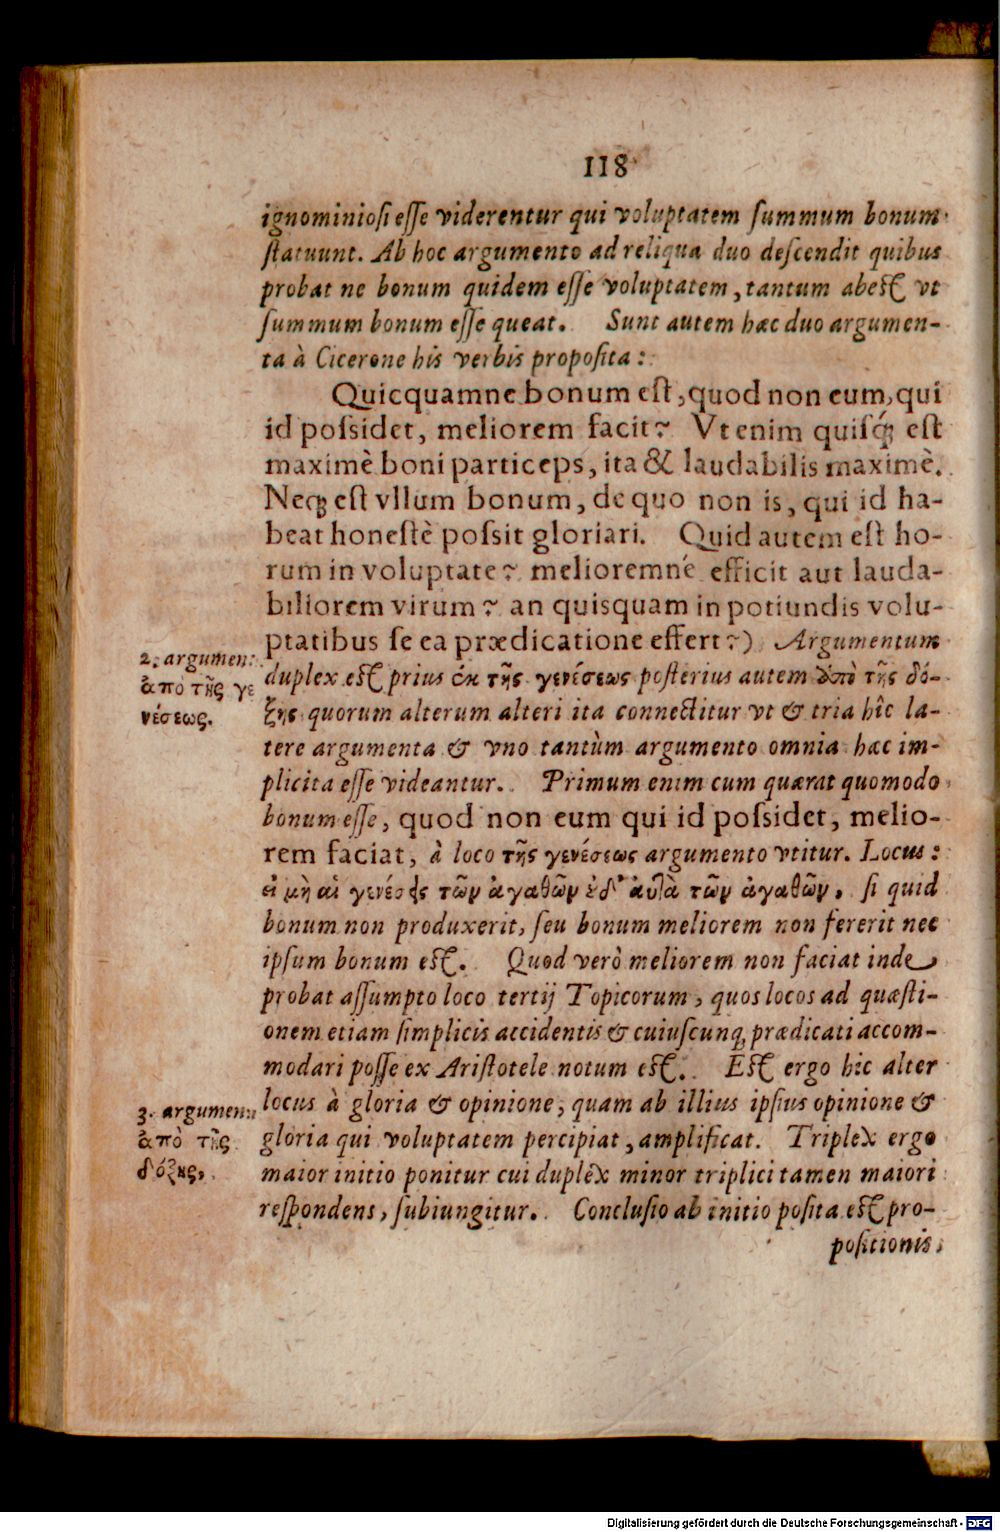 118
ignominiosi esse viderentur qui voluptatem summum bonum
statuunt. Ab hoc argumento ad reliqua duo descendit quibus
probat ne bonum quidem esse voluptatem, tantum abest vt
summum bonum esse queat. Sunt autem hæc duo argumen-
ta à Cicerone his verbis proposita:
Quicquamne bonum est, quod non eum, qui
id possidet, meliorem facit? Vt enim quisq́ꝫ est
maximè boni particeps, ita & laudabilis maximè.
Neqꝫ est vllum bonum, de quo non is, qui id ha-
beat honestè possit gloriari. Quid autem est ho-
rum in voluptate? melioremné efficit aut lauda-
biliorem virum? an quisquam in potiundis volu-
ptatibus se ea prædicatione effert?) Argumentum
2. argumen:
ἀπὸ τῆς γε
νέσεως.
duplex est prius ἐκ τῆς γενέσεως posterius autem ἀπὸ τῆς δό-
ξης quorum alterum alteri ita connectitur vt & tria hîc la-
tere argumenta & vno tantùm argumento omnia hæc im-
plicita esse videantur. Primum enim cum quærat quomodo
bonum esse, quod non eum qui id possidet, melio-
rem faciat, à loco τῆς γενέσεως argumento vtitur. Locus:
εἰ μὴ αἱ γενέσεις τῶν ἀγαθῶν ἐδ' αὐτὰ τῶν ἀγαθῶν, si quid
bonum non produxerit, seu bonum meliorem non fererit nec
ipsum bonum est. Quod verò meliorem non faciat inde
probat assumpto loco tertij Topicorum, quos locos ad quæsti-
onem etiam simplicis accidentis & cuiuscunqꝫ prædicati accom-
modari posse ex Aristotele notum est. Est ergo hic alter
locus à gloria & opinione, quam ab illius ipsius opinione &
3. argumen:
ἀπὸ τῆς
δόξης,
gloria qui voluptatem percipiat, amplificat. Triplex ergo
maior initio ponitur cui dupléx minor triplici tamen maiori
respondens, subiungitur. Conclusio ab initio posita est pro-
positionis,
Digitalisierung gefördert durch die Deutsche Forschungsgemeinschaft - DFG